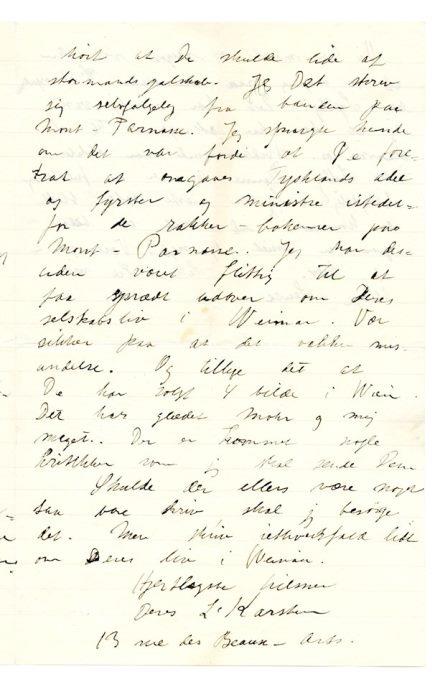 hört at De skulde lide af
stormandsgalskab. Jeg Det skrev
sig selvfølgelig fra banden paa
Mont-Parnasse. Jeg spurgte hende
om det var fordi at De fore-
trak at omgaaes Tysklands adel
og fyrster og ministre istedet-
for de rakker-bohemer paa
Mont-Parnasse. Jeg har des-
uden været flittig til at
faa spredt udover om Deres
selskabsliv i Weimar. Vær
sikker paa at det vækker mis-
undelse. Og tillige det at
De har solgt 4 billede i Wien.
Det har glædet Mohr og mig
meget. Der er kommet nogle
kritikker som jeg skal sende Dem
Skulde der ellers være noget
saa bare skriv skal jeg besörge
det. Men skriv iethvertfald lidt
om Deres liv i Weimar.
Hjertligste hilsner
Deres L Karsten
13 rue des Beaux-Arts.